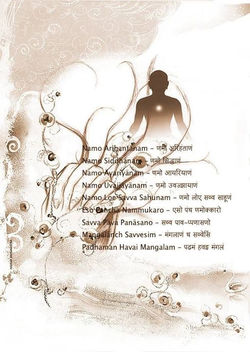 Namo Arihantanam - णमो अरिहताणं
Namo Siddhanam - णमो सिद्धाणं
Namo Ayariyanam - णमो आयरियाणं
Namo Uvajjayanam - णमो उवज्झायाणं
Namo Loe Savva Sahunam - णमो लोए सव्व साहूण
Eso Pancha Nammukaro - एसो पंच णमोक्कारो
Savva Pava Panasano - सव्व पाव-प्पणासणो
Mangalanch Savvesim - मंगलाणं च सव्वेसिं
Padhaman Havai Mangalam - पढम हवइ मंगलं